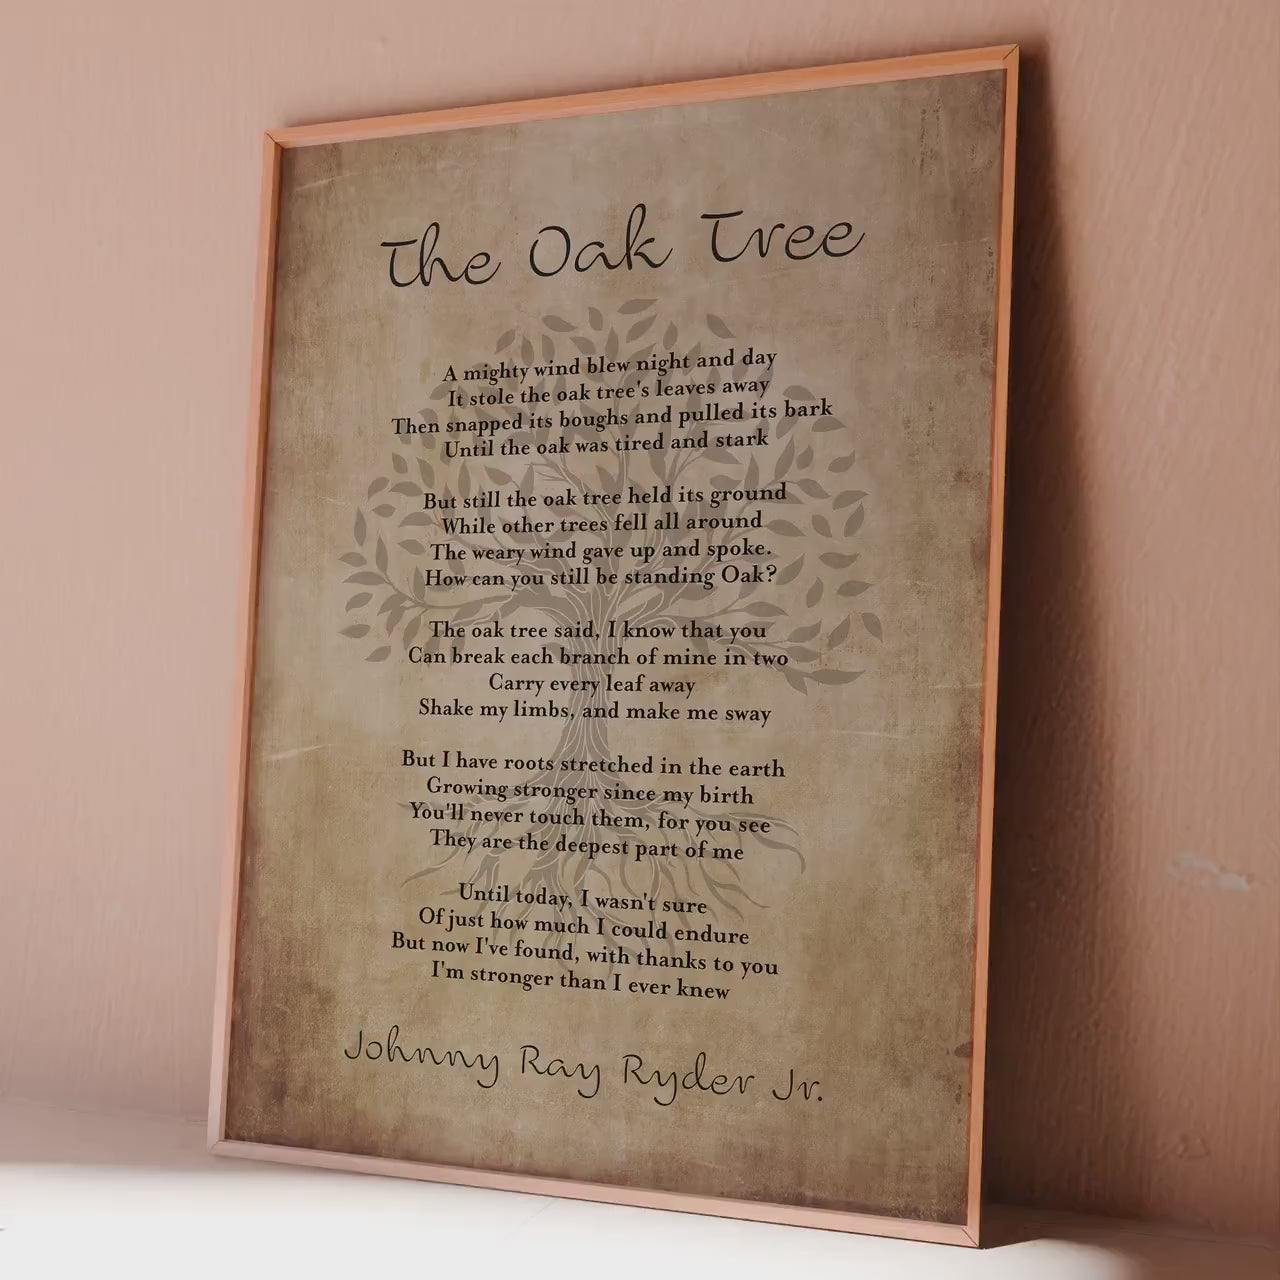 The Oak Tree
A mighty wind blew night and day
It stole the oak tree's leaves away
Then snapped its boughs and pulled its bark
Until the oak was tired and stark
But still the oak tree held its ground
While other trees fell all around
The weary wind gave up and spoke.
How can you still be standing Oak?
The oak tree said, I know that you
Can break each branch of mine in two
Carry every leaf away
Shake my limbs, and make me sway
But I have roots stretched in the earth
Growing stronger since my birth
You'll never touch them, for you see
They are the deepest part of me
Until today, I wasn't sure
Of just how much I could endure
But now I've found, with thanks to you
I'm stronger than I ever knew
Johnny Ray Ryder Jr.